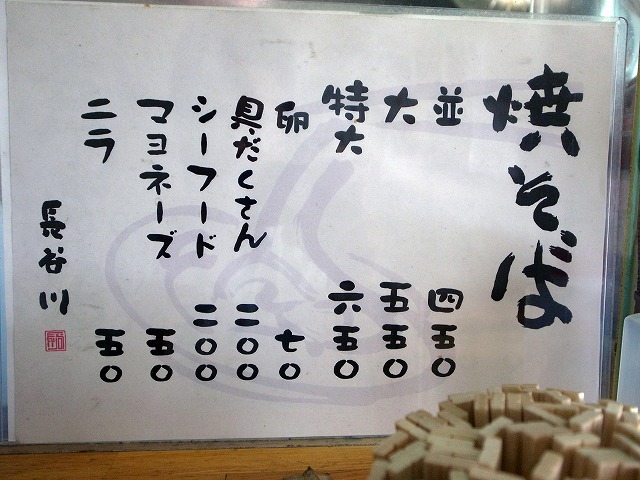 焼そば
並 四五〇
大 五五〇
特大 六五〇
卵 七〇
具だくさん 二〇〇
シーフード 二〇〇
マヨネーズ 五〇
ニラ 五〇
長谷川